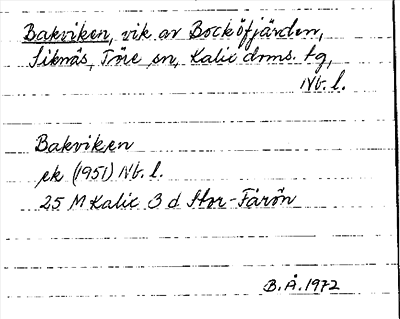 Bakviken, vik av Bocköfjärden,
Siknäs, Töre sn, Kalix dms. tg,
Nb. l.
Bakviken
ek (1951) Nb. l.
25 M Kalix 3 d Stor-Fårön
B.Å. 1972